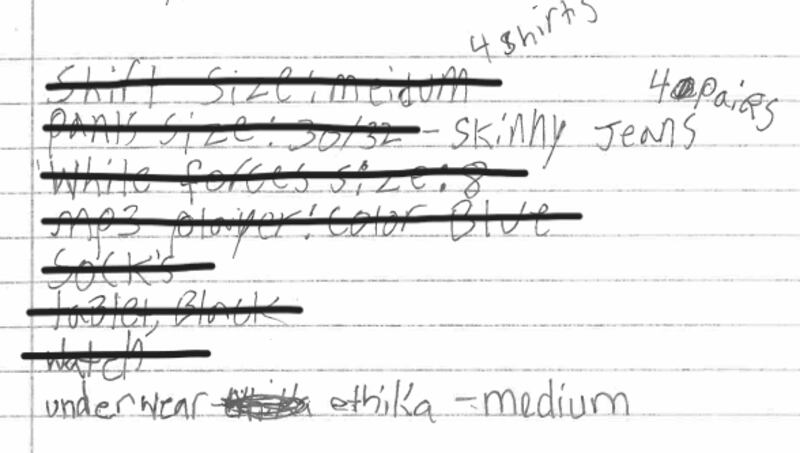 4 shirts
Shirt size: meidum
4 paies
pants size: 30/32 - skinny Jeans
White forces size: 8
mp3 player: color Blue
Sock's
tablet, Black
watch
underwear ethika - medium